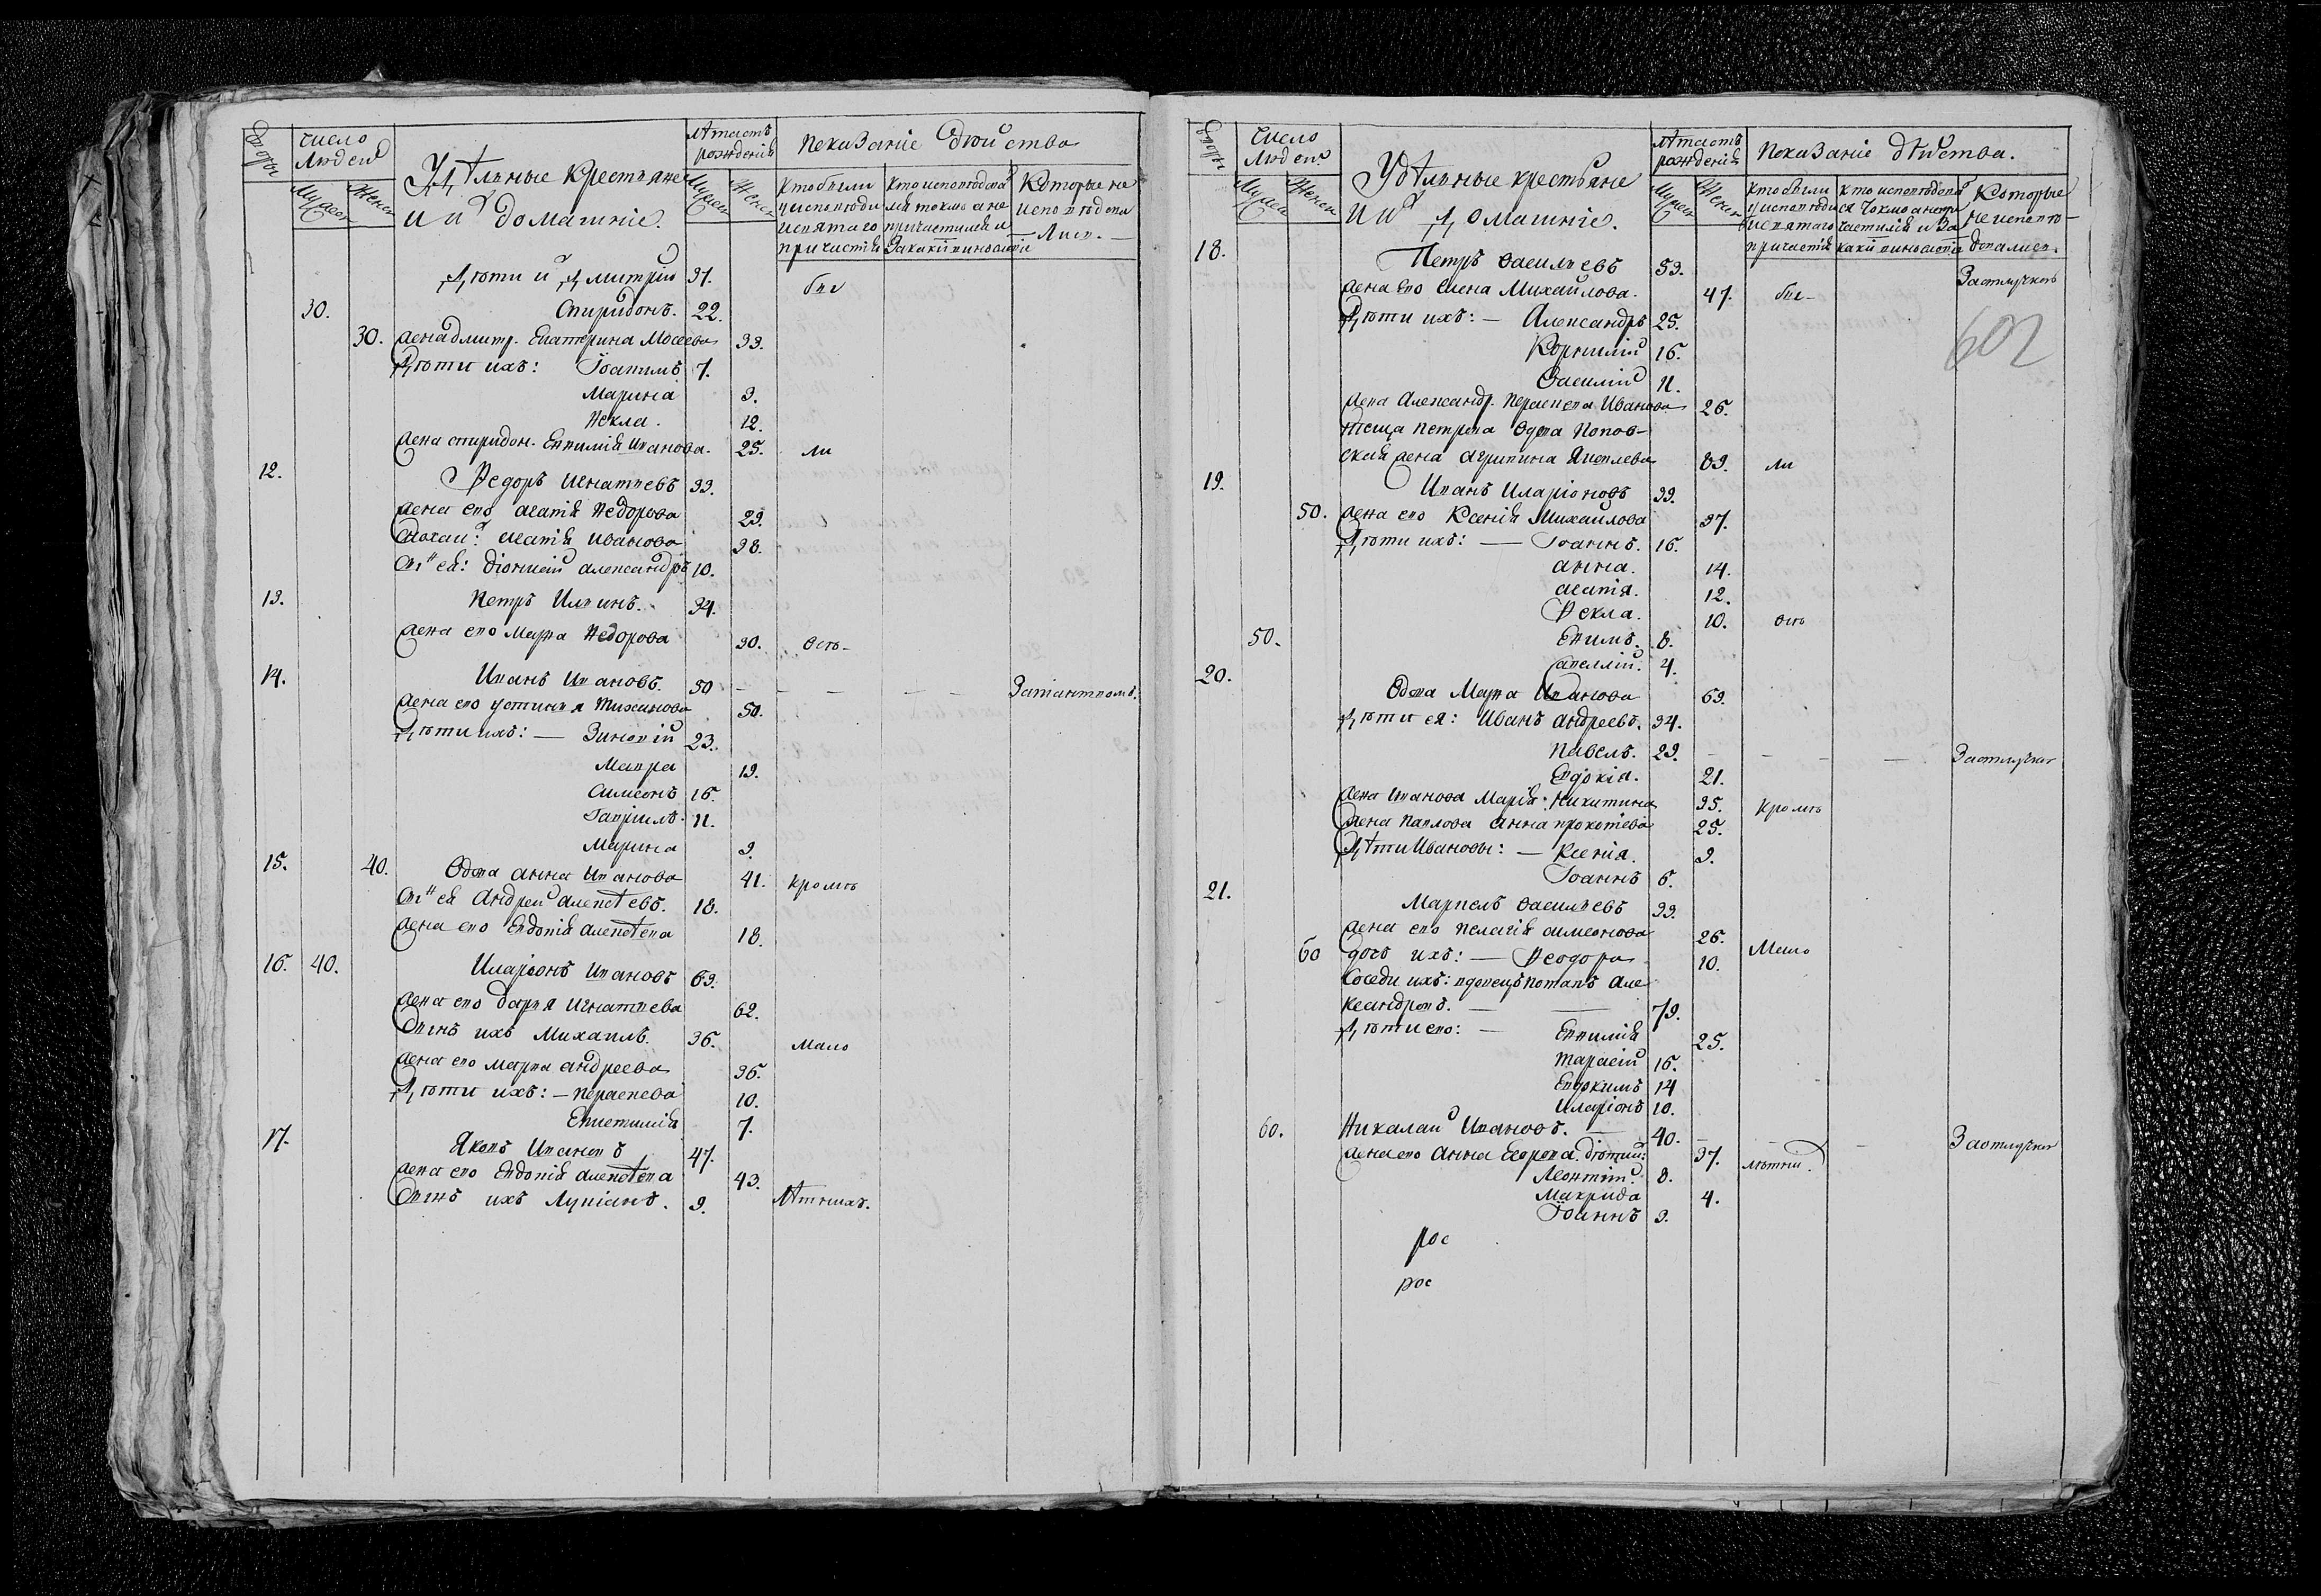 Дворы
число
Людей
Мужес
Женск
Удѣльные Крестьяне
и иˣ домашніе.
лѣта отъ
рожденія
Мужеск
Женск
показаніе Дѣйства
Кто были
у исповѣди
и святаго
причастія
Кто исповѣдал
ся токмо а не
причастился и
за какіи винословіи
Которые не
исповѣдова
лись.
Дѣти иˣ Дмитрій 37.
все
30. Спиридонъ. 22.
30. жена дмитр. Екатерина Мосеева 33.
Дѣти ихъ: Іоакимъ 7.
Марина 9.
Текла. 12.
жена спиридон. Евѳимія Иванова. 25. ли
12. Федоръ Игнатьевъ 33.
жена его Агапія Федорова 29.
Агапія Иванова 38.
Сн͠ъ ея: Діонисій Александръ 10.
13. Петръ Ильинъ. 34.
жена его Марѳа Федорова 30. Есть
14. Иванъ Ивановъ. 50 - - - - -
жена его Устинья Тихонова 50.
Дѣти ихъ: — Зиновій 23.
Мавра 19.
Симеонъ 16.
Гавріилъ 11.
Марина 9.
15. 40. Вдова Анна Иванова 41. кромѣ
Сн͠ъ ея Андрей Алексѣевъ. 18.
жена его Евдокія Алексѣева 18.
16. 40. Иларіонъ Ивановъ 63.
жена его Дарья Игнатьева 62.
Сынъ ихъ Михаилъ. 36. мало
жена его Марѳа Андреева 36.
Дѣти ихъ: — Параскева 10.
7.
17. Яковъ Ивановъ 47.
жена его Евдокія Алексѣева 43.
Сынъ ихъ Лукіанъ. 9. лѣтнихъ.
Дворы
Число
Людей
Мужеск
Женск
Удѣльные крестьяне
и иˣ Домашніе.
лѣта отъ
рожденія
Мужеск
Женск
Показаніе дѣйства.
Кто были
у исповѣди
и святаго
причастія
Кто исповѣдал
ся токмо а не при
частился и за
какіи винословія
Которые
не исповѣ-
довались.
18. Петръ Васильевъ 53. За отлучкою
жена его Елена Михайлова. 47. все-
602
Дѣти ихъ: — Александръ 25.
Корнилій 16.
Василій 11.
жена Александр. Параскева Иванова 26.
Теща Петрова вдова Попов-
ская жена Агрипина Яковлева 83. ли
19. Иванъ Иларіоновъ 33.
50. жена его Ксенія Михайлова 37.
Дѣти ихъ: — Іоаннъ. 16.
Анна. 14.
Агапія. 12.
Ѳекла. 10. есть
50. Евѳимъ. 8.
4.
20. Вдова Марѳа Иванова 63.
Дѣти ея: Иванъ Андреевъ. 34.
Павелъ. 29. - - - За отлучкою
Евдокіа. 21.
жена Иванова Марія Никитина 35. кромѣ
жена Павлова Анна Прокофіева 25.
Дѣти Ивановы: — Ксенія. 9.
Іоаннъ 6.
21. Маркелъ Васильевъ 33.
жена его Пелагія Симеонова 26.
60 дочь ихъ: — Ѳеодора 10. Мало
Соседи ихъ: вдовецъ Потапъ Але
ксандровъ. — — 73.
Дѣти его: — Евѳимія 25.
Тарасій 16.
Евдокимъ 14
Иларіонъ 10.
60. Николай Ивановъ. — 40. - - - За отлучкою
жена его Анна Егорова. дѣти иˣ: 37. лѣтниˣ.
Леонтій. 8.
Макрида 4.
Іоаннъ 3.
рос
рос